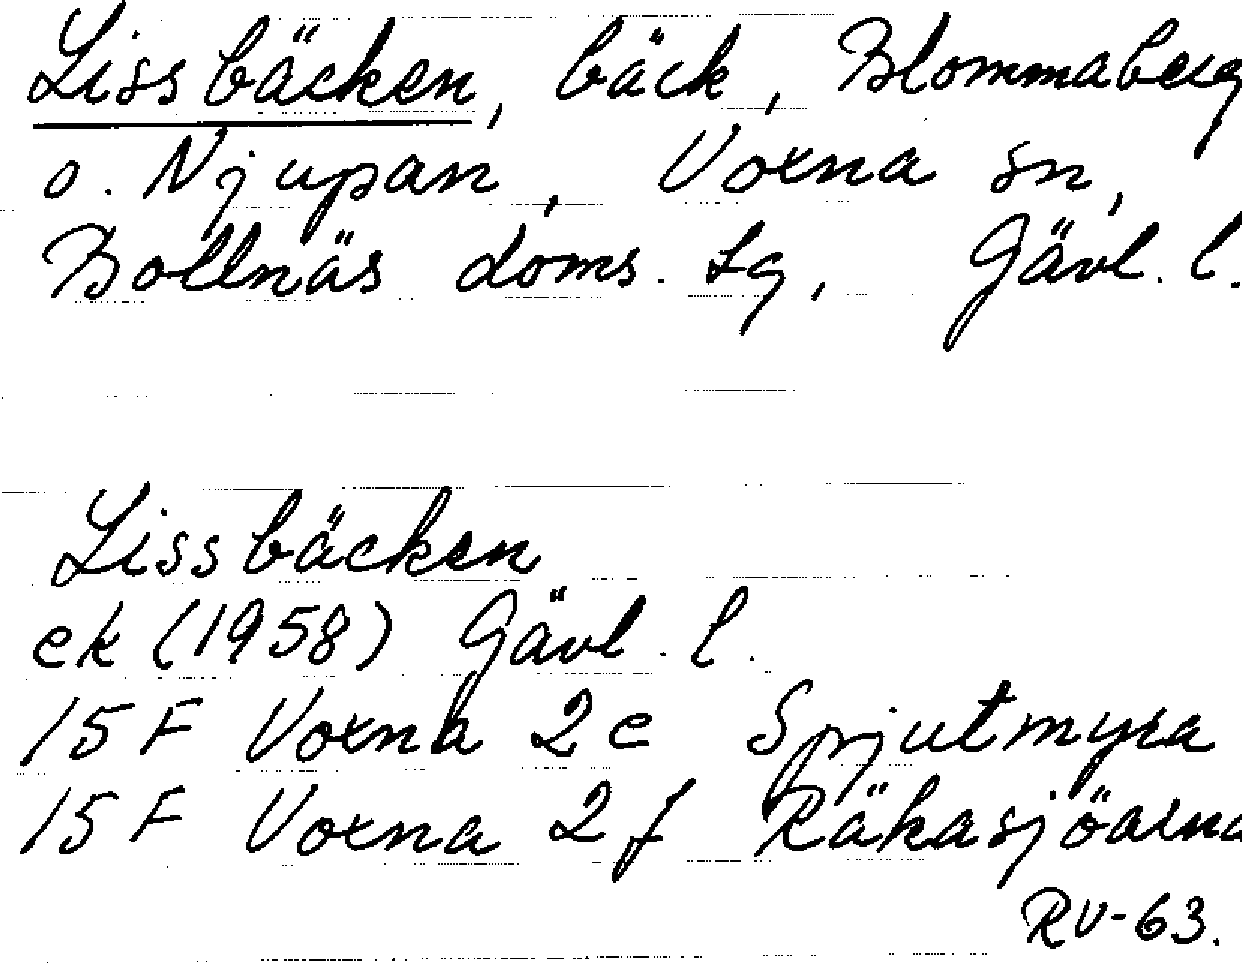 Lissbäcken, bäck, Blommaberg
o. Njupan, Voxna sn,
Bollnäs doms. tg, Gävl. l.
Lissbäcken
ek (1958) Gävl. l.
15 F Voxna 2e Spjutmyra
15 F Voxna 2f Räkasjöarna
RV-63.